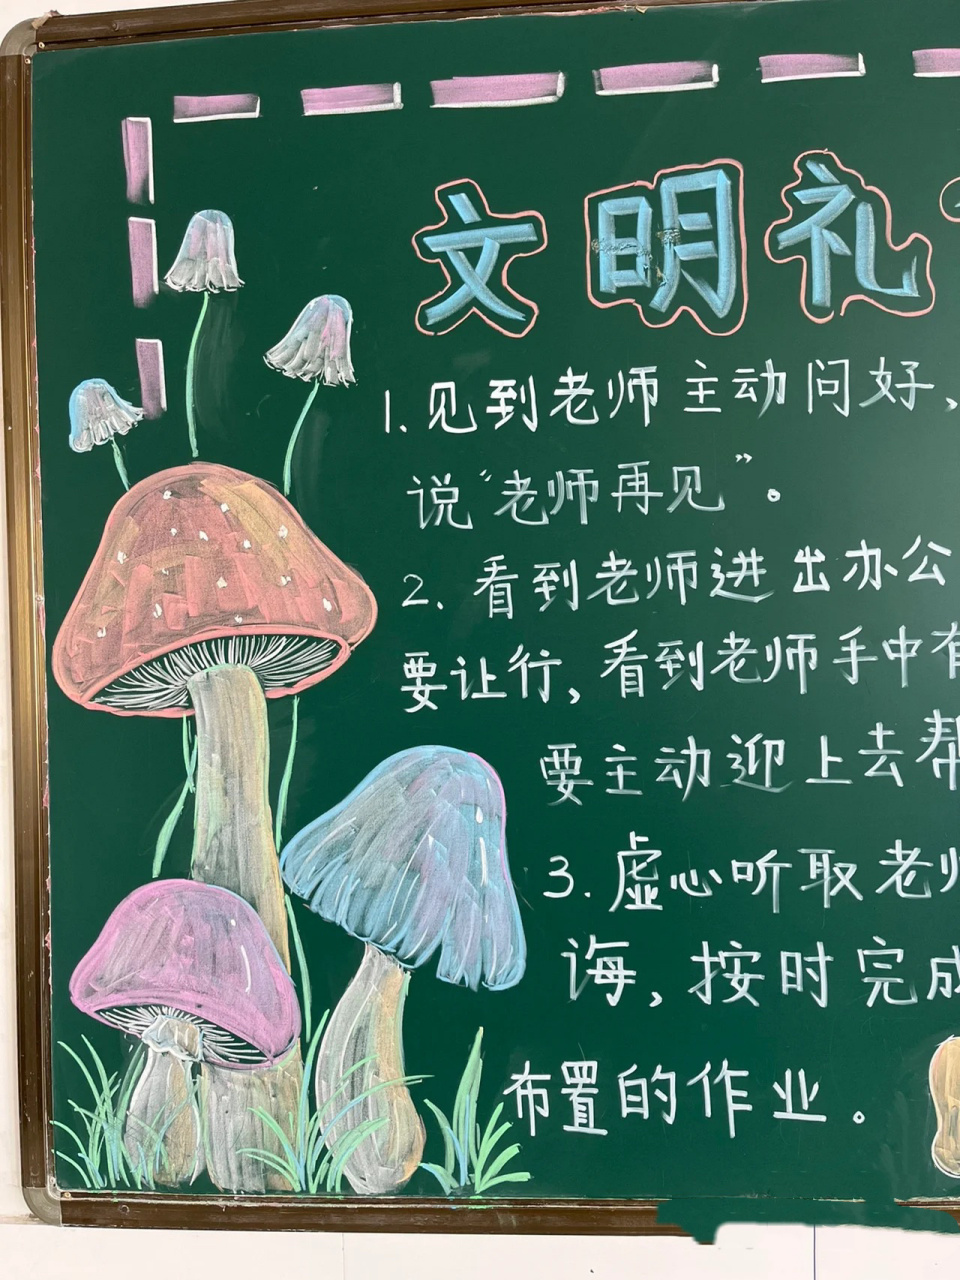 文明礼
1.见到老师主动问好，
说“老师再见”。
2.看到老师进出办公
要让行，看到老师手中有
要主动迎上去帮
3.虚心听取老师
诲，按时完成
布置的作业。